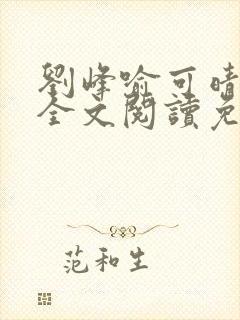 劉峰喻可晴
全文閱讀免
范和生